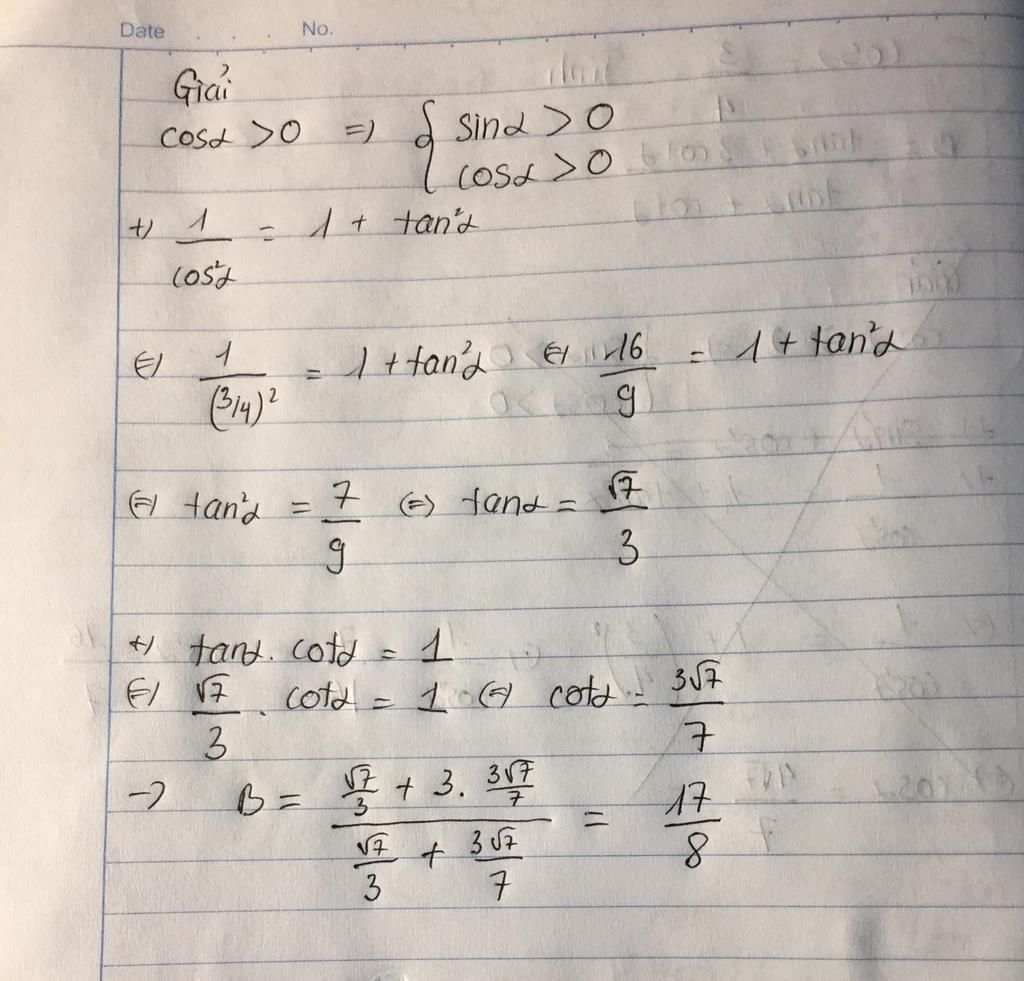 Date . . . . No.
Giải
cosα > 0 => { sinα > 0
cosα > 0
+) 1/cos²α = 1 + tan²α
(=) 1/(3/4)² = 1 + tan²α (=) 16/9 = 1 + tan²α
(=) tan²α = 7/9 (=) tanα = √7/3
+) tanα. cotα = 1
(=) √7/3 . cotα = 1 (=) cotα = 3√7/7
-> B = (√7/3 + 3. 3√7/7)/(√7/3 + 3√7/7) = 17/8